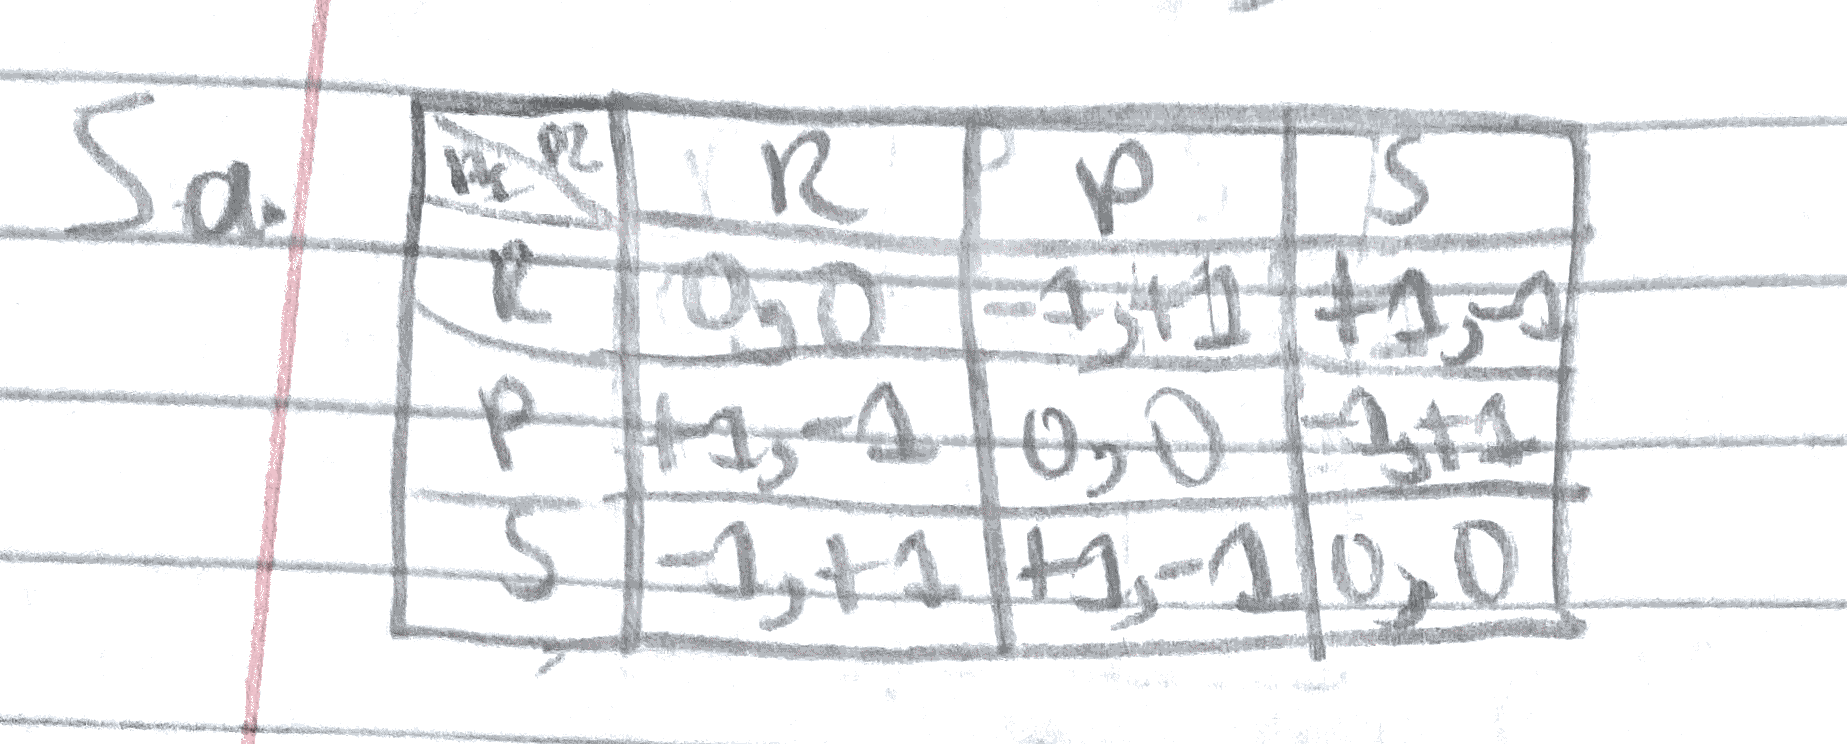 5a.
P1 P2 R P S
R 0,0 -1,+1 +1,-1
P +1,-1 0,0 -1,+1
S -1,+1 +1,-1 0,0